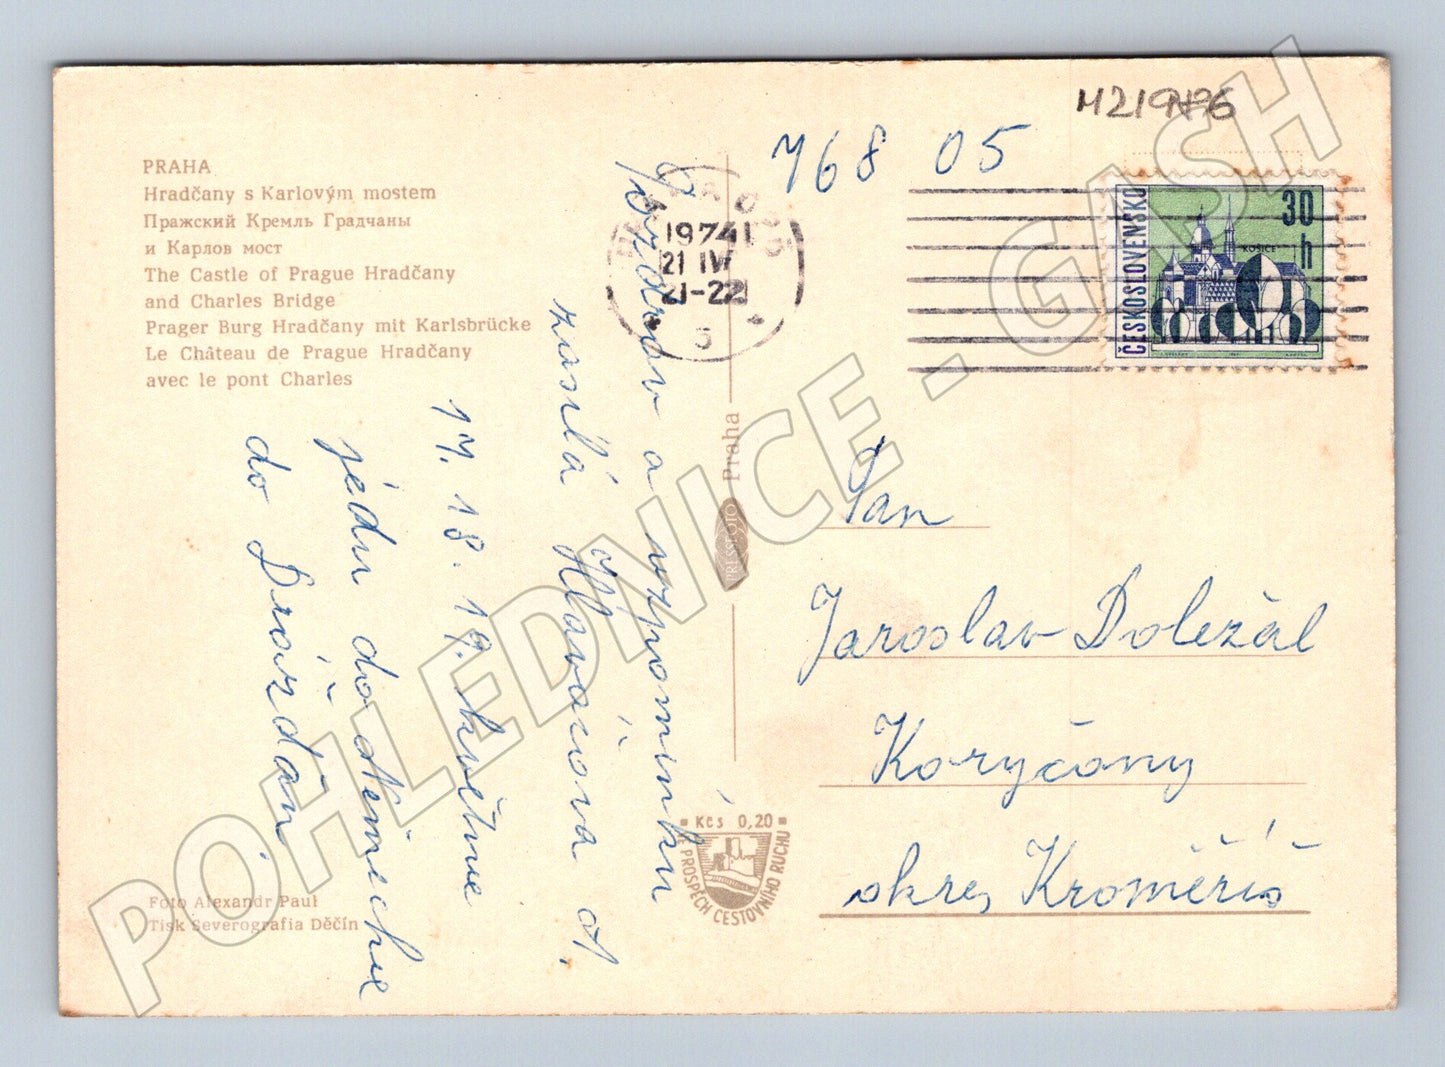 PRAHA
Hradčany s Karlovým mostem
Пражский Кремль Градчаны
и Карлов мост
The Castle of Prague Hradčany
and Charles Bridge
Prager Burg Hradčany mit Karlsbrücke
Le Château de Prague Hradčany
avec le pont Charles
Pozdrav a vzpomínku
zaslá Hlavacova A.
17. 18. 19. května
jédu do Němicha
do Drážďan
Foto Alexandr Paul
Tisk Severografia Děčín
PRESSFOTO Praha
Kčs 0,20
VE PROSPĚCH CESTOVNÍHO RUCHU
1974
21 IV
21-22
5
M219476
768 05
ČESKOSLOVENSKO
30 h
KOŠICE
Pan
Jaroslav Doležál
Koryčany
okres Kroměříš
POHLEDNICE - GASH